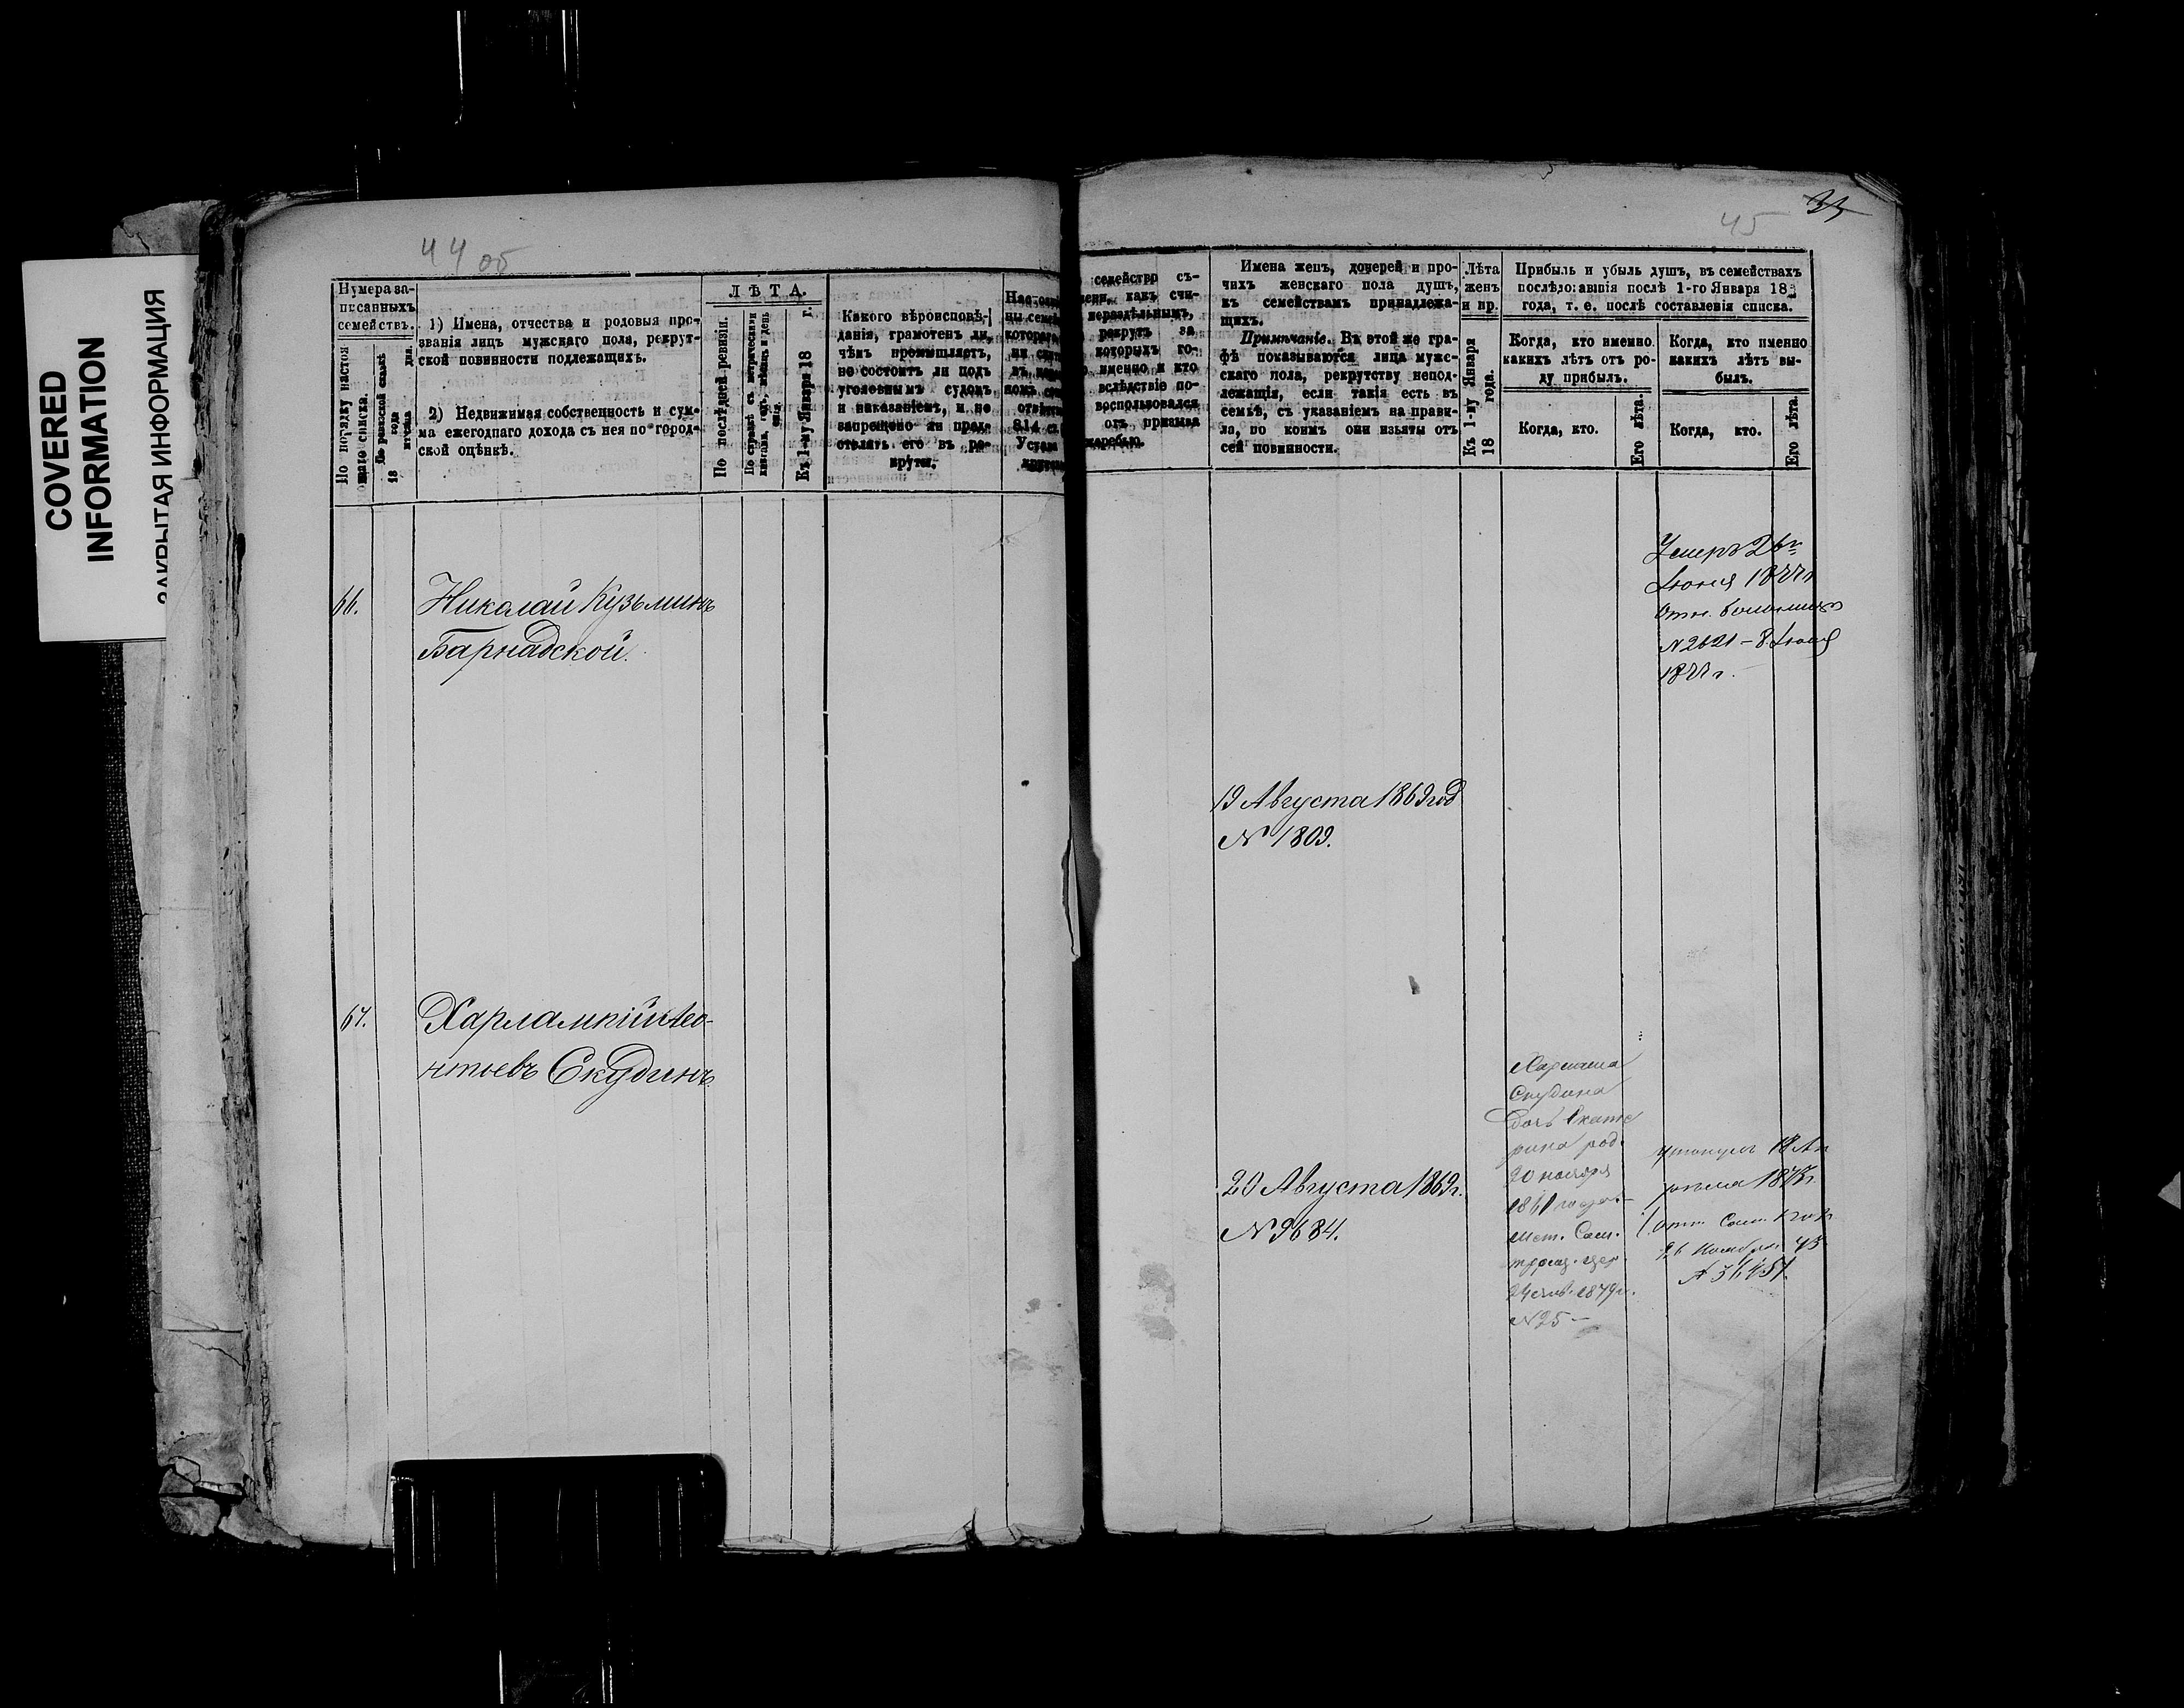 COVERED
INFORMATION
ЗАКРЫТАЯ ИНФОРМАЦИЯ
44 об
Нумера за-
писанныхъ
семействъ.
По порядку настоя
щаго списка.
По ревизской сказкѣ
18 года
1) Имена, отчества и родовыя про-
званія лицъ мужскаго пола, рекрут-
ской повинности подлежащихъ.
2) Недвижимая собственность и сум-
ма ежегоднаго дохода съ нея по город-
ской оцѣнкѣ.
ЛѢТА.
По послѣдней ревизіи.
По справкѣ съ метрическими
книгами, годъ, мѣсяцъ и день
Къ 1-му Января 18 г.
Какого вѣроисповѣ-
данія, грамотенъ ли,
чѣмъ промышляетъ,
не состоитъ ли подъ
уголовнымъ судомъ
и наказаніемъ, и не
запрещено ли пред-
ставлять его въ ре-
круты.
814
66.
Николай Кузьминъ
Барнадской.
67.
Харлампій Лео-
нтьевъ Скудинъ.
45
33
семейство съ-
какъ счи-
нераздѣльнымъ,
рекрутъ за
которыхъ го-
именно и кто
вслѣдствіе по-
воспользовался
отъ призыва
жеребью.
Имена женъ, дочерей и про-
чихъ женскаго пола душъ,
къ семействамъ принадлежа-
щихъ.
Примѣчаніе. Въ этой же гра-
фѣ показываются лица муж-
скаго пола, рекрутству непод-
лежащія, если такія есть въ
семьѣ, съ указаніемъ на прави-
ла, по коимъ они изъяты отъ
сей повинности.
Лѣта
женъ
и пр.
Къ 1-му Января
18 года.
Прибыль и убыль душъ, въ семействахъ
послѣдовавшія послѣ 1-го Января 18
года, т. е. послѣ составленія списка.
Когда, кто именно.
какихъ лѣтъ отъ ро-
ду прибылъ.
Когда, кто именно
какихъ лѣтъ вы-
былъ.
Когда, кто.
Его лѣта.
Когда, кто.
Его лѣта.
Умеръ 26
Іюня 1877г
Отн. больницы
N 2621 – 8 Іюля
1877г.
19 Августа 1869 год
N 1809.
20 Августа 1869г.
N 9684.
Скудина
дочь Екате
рина род.
20 ноября
1861 года
мет.
N 25 –
18 Ап
рѣля 1873г
26 Ноября 73